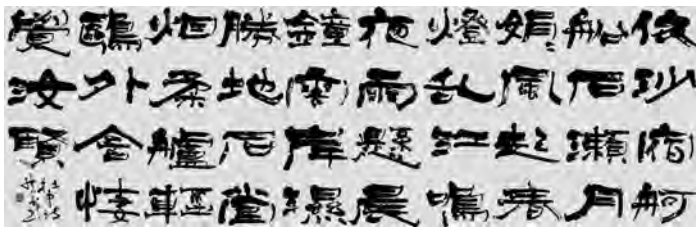 依沙宿舸
船石瀨月
娟々風起春
燈乱江鳴
夜雨懸晨
鐘雲岸濕
勝地石堂
烟柔艫輕
鷗外含悽
覺汝賢